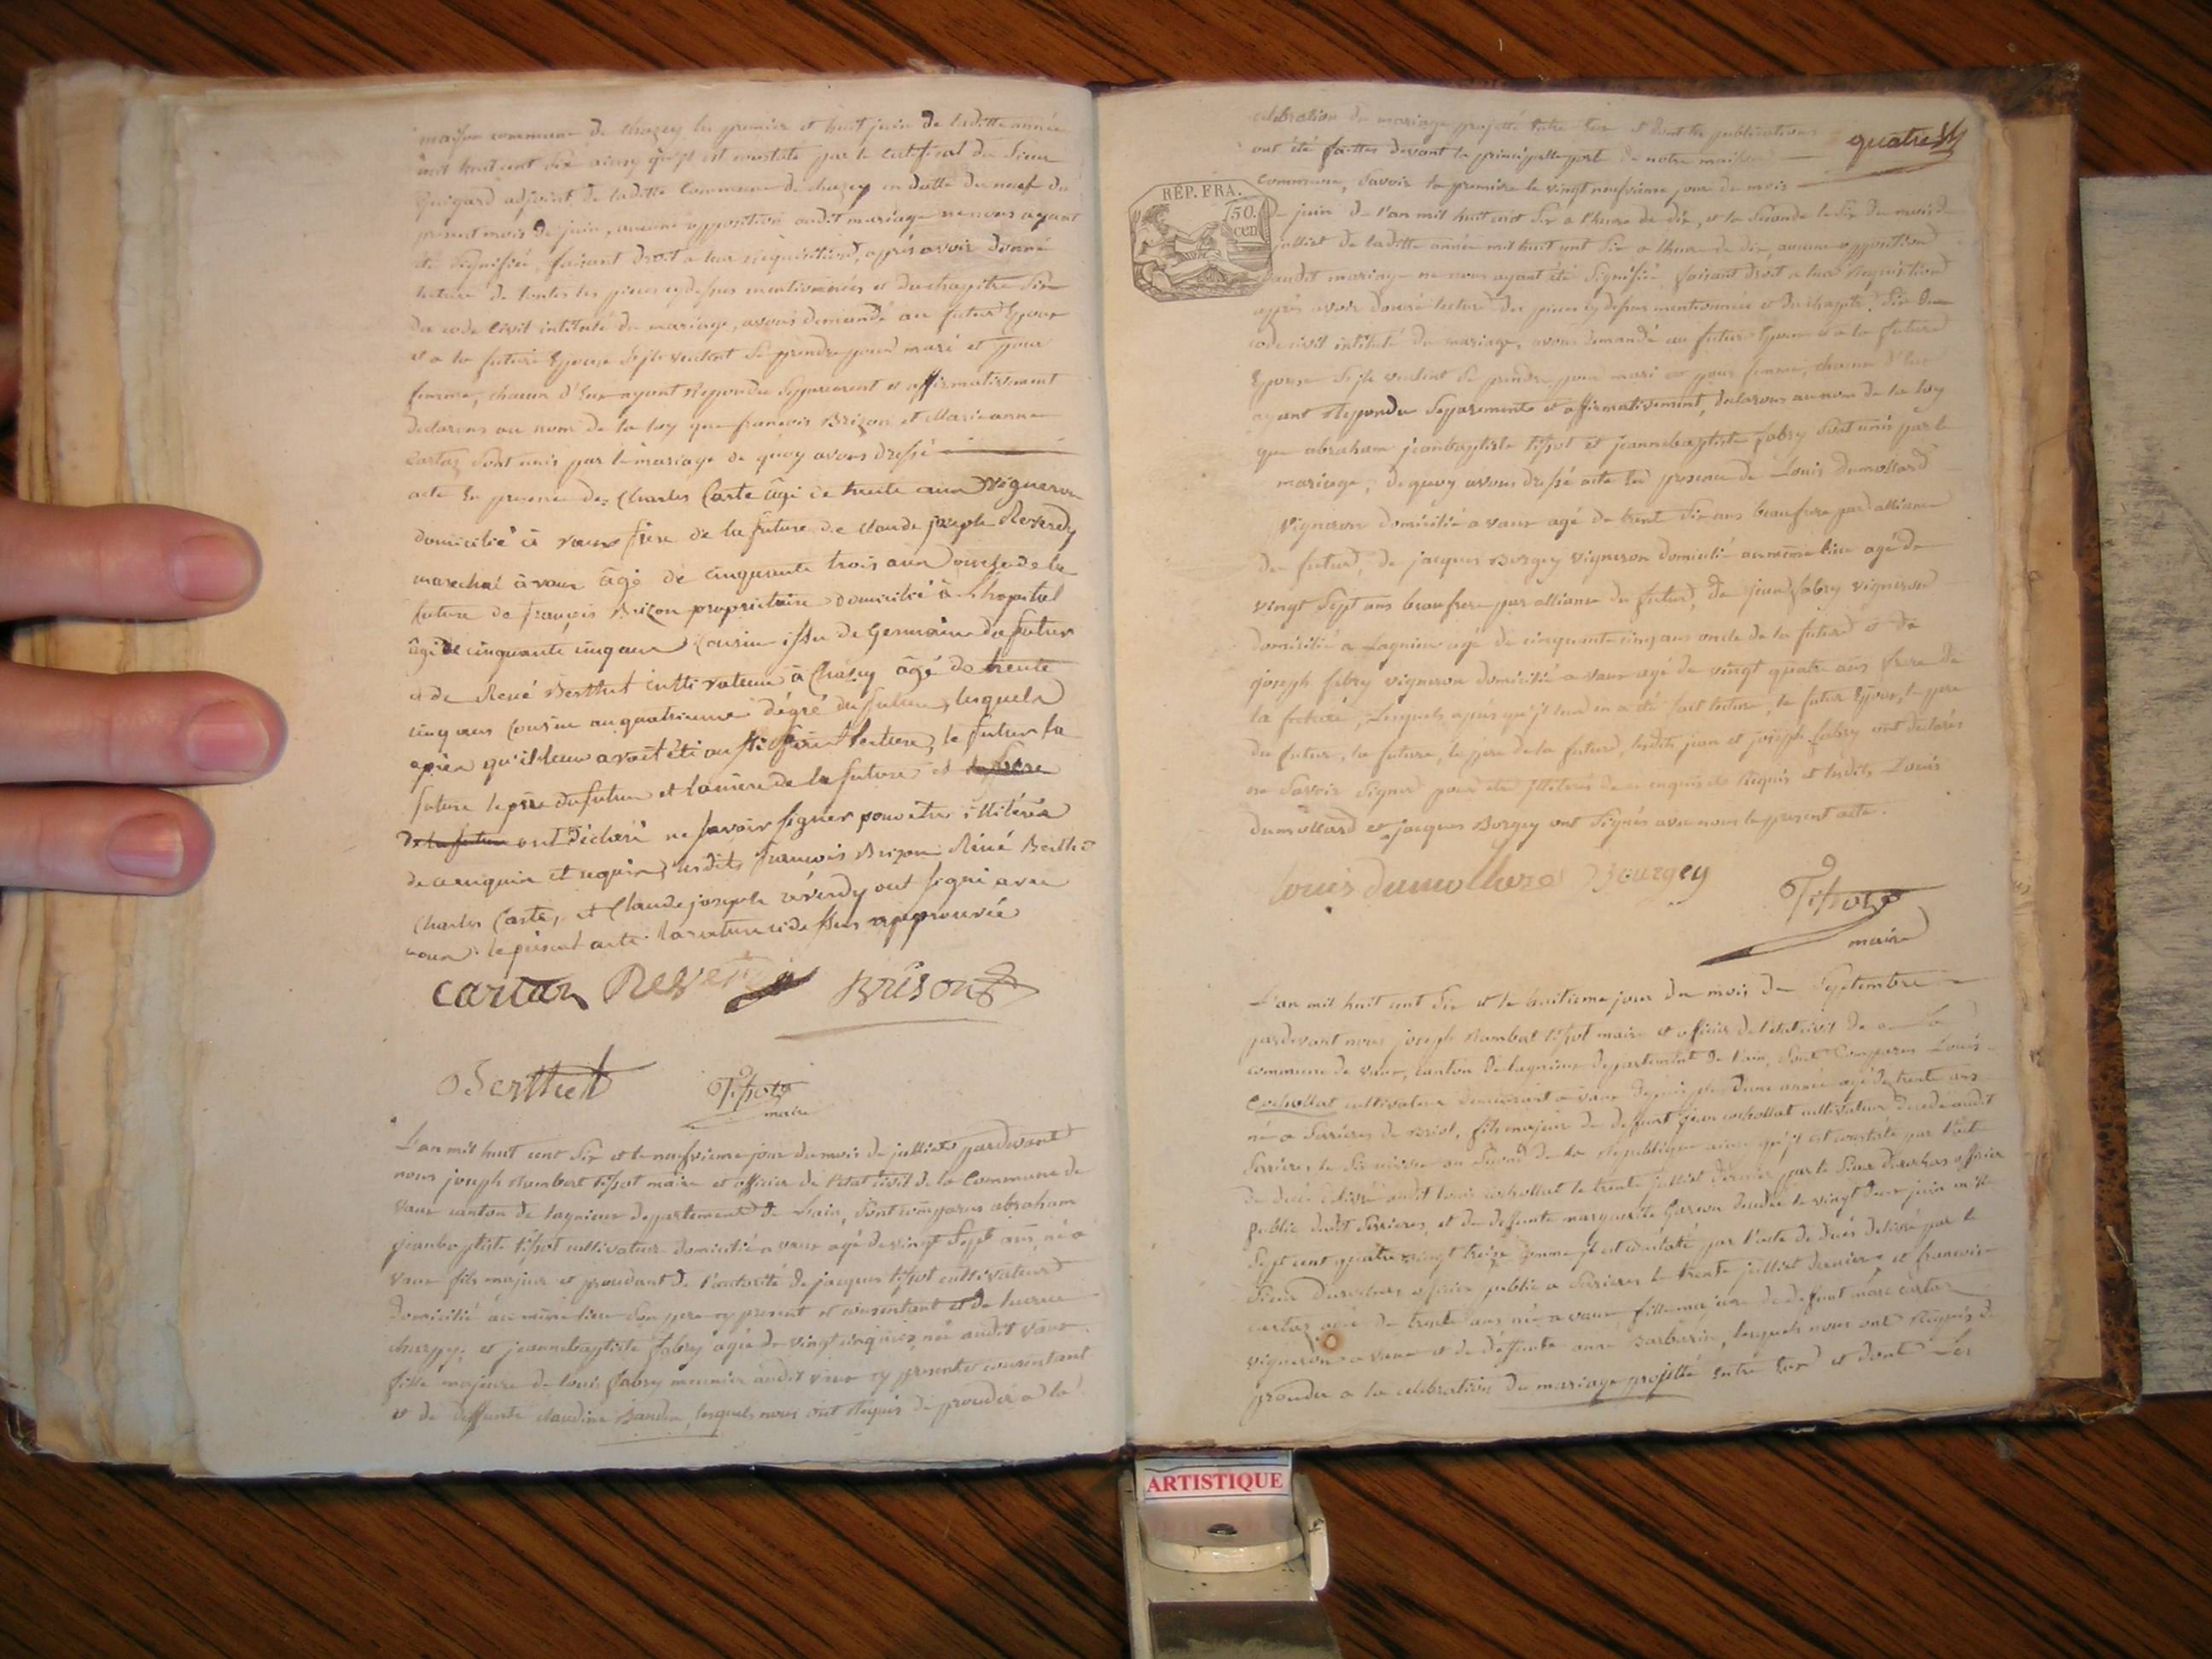 maison commune de chazey les premier et huit juin de laditte année
mil huit cent six ainsy qu'jl est constaté par le certificat du sieur
Guigard adjoint de laditte commune de chazey en datte du neuf du
present mois de juin, aucune opposition audit mariage ne nous ayant
été signifiée, faisant droit a leur requisition, après avoir donné
lecture de toutes les pieces cydessus mentionnées et du chapitre six
du code civil intitulé du mariage, avons demandé au futur Epoux
et a la future Epouse s'jls veulent se prendre pour mari et pour
femme, chacun d'Eux ayant repondu separement et affirmativement
declarons au nom de la loy que françois Brizon et Marieanne
Cartaz sont unis par le mariage de quoy avons dressé
acte En presence de Charles Carta âgé de trente ans vigneron
domicilié à vaux frère de la future de Claude joseph Reverdy
marechal à vaux âgé de cinquante trois ans oncle de la
future de françois Brizon propriétaire domicilié à Lhopital
âgé de cinquante cinq ans cousin issu de Germain du futur
et de René Berthet cultivateur à Chazey âgé de trente
cinq ans cousin au quatrieme dégré du futur, lesquels
après qu'il leur avait été aussi fait lecture, le futur la
future le père du futur et la mère de la future et le frère
de la future ont déclaré ne savoir signer pour être illitérés
de ce enquis et requis, lesdits françois Brizon René Berthet
Charles Carta, et Claude joseph réverdy ont signé avec
nous le présent acte la rature ci dessus approuvée
cartaz Reverdy Brison
Berthet Tissot
maire
L'an mil huit cent six et le neufvieme jour du mois de julliet pardevant
nous joseph Rambert tissot maire et officier de l'etat civil de la Commune de
vaux canton de lagnieux departement de Lain, sont comparus abraham
jeanbaptiste tissot cultivateur domicilié a vaux agé de vingt sept ans, né a
vaux fils majeur et procedant de l'autorité de jacques tissot cultivateur
domicilié au même lieu son pere cy present et consentant et de
charpy; et jeannebaptiste fabry agée de vingt cinq ans, née audit vaux
fille majeure de louis fabry meunier audit vaux cy present et consentant
et de deffunte claudine, lesquels nous ont requis de proceder a la
quatre
celebration du mariage projetté entre Eux et dont les publications
ont été faittes devant la principalle porte de notre maison
commune, savoir la premiere le vingt neufvieme jour du mois
RÉP. FRA.
50. cen
de juin de l'an mil huit cent six a l'heure de dix, et la seconde le six du mois de
julliet de laditte année mil huit cent six a lheure de dix, aucune opposition
audit mariage ne nous ayant été signifiée, faisant droit a leur requisition
après avoir donné lecture des pieces cydessus mentionnées et du chapitre six du
code civil intitulé du mariage, avons demandé au futur Epoux et a la future
Epouse s'jls veulent se prendre pour mari et pour femme, chacun d'Eux
ayant repondu separement et affirmativement, declarons au nom de la loy
que abraham jeanbaptiste tissot et jeannebaptiste fabry sont unis par le
mariage; de quoy avons dressé acte en presence de Louis Dumollard
vigneron domicilié a vaux agé de trente six ans beaufrere par alliance
du futur, de jacques Borgey vigneron domicilié au même lieu agé de
vingt sept ans beaufrere par alliance du futur, de jean fabry vigneron
domicilié a Lagnieu agé de cinquante cinq ans oncle de la future et de
joseph fabry vigneron domicilié a vaux agé de vingt quatre ans frere de
la future, Lesquels après qu'jl leur en a été fait lecture, le futur Epoux, le pere
du futur, la future, le pere de la future, lesdits jean et joseph fabry ont declarés
ne savoir signer pour etre jlliterés de ce enquis et requis et lesdits Louis
dumollard et jacques Borgey ont signés avec nous le present acte.
louis dumollard Bourgey
Tissot
maire
L'an mil huit cent six et le huitieme jour du mois de Septembre
pardevant nous joseph Rambert tissot maire et officier de l'etat civil de la
commune de vaux, canton de lagnieux departement de l'ain, sont Comparus Louis
Cochollat cultivateur demeurant a vaux depuis plus d'une année agé de trente ans
né a Serrieres de Briol, fils majeur de deffunt jean cochollat cultivateur decedé audit
Serrieres le an second de la republique ainsi qu'jl est constaté par l'acte
de decès delivré audit louis cochollat le trente julliet dernier par le sieur officier
public dudit Serrieres, et de deffunte marguerite decedée le vingt deux juin mil
sept cent quatre vingt treize comme jl est constaté par l'acte de decès delivré par le
sieur officier public a Serrieres le trente julliet dernier, et francoise
cartaz agée de trente ans née a vaux fille majeure de deffunt marc cartaz
vigneron a vaux et de deffunte anne Barbarin, lesquels nous ont requis de
proceder a la celebration du mariage projetté entre Eux et dont les
ARTISTIQUE